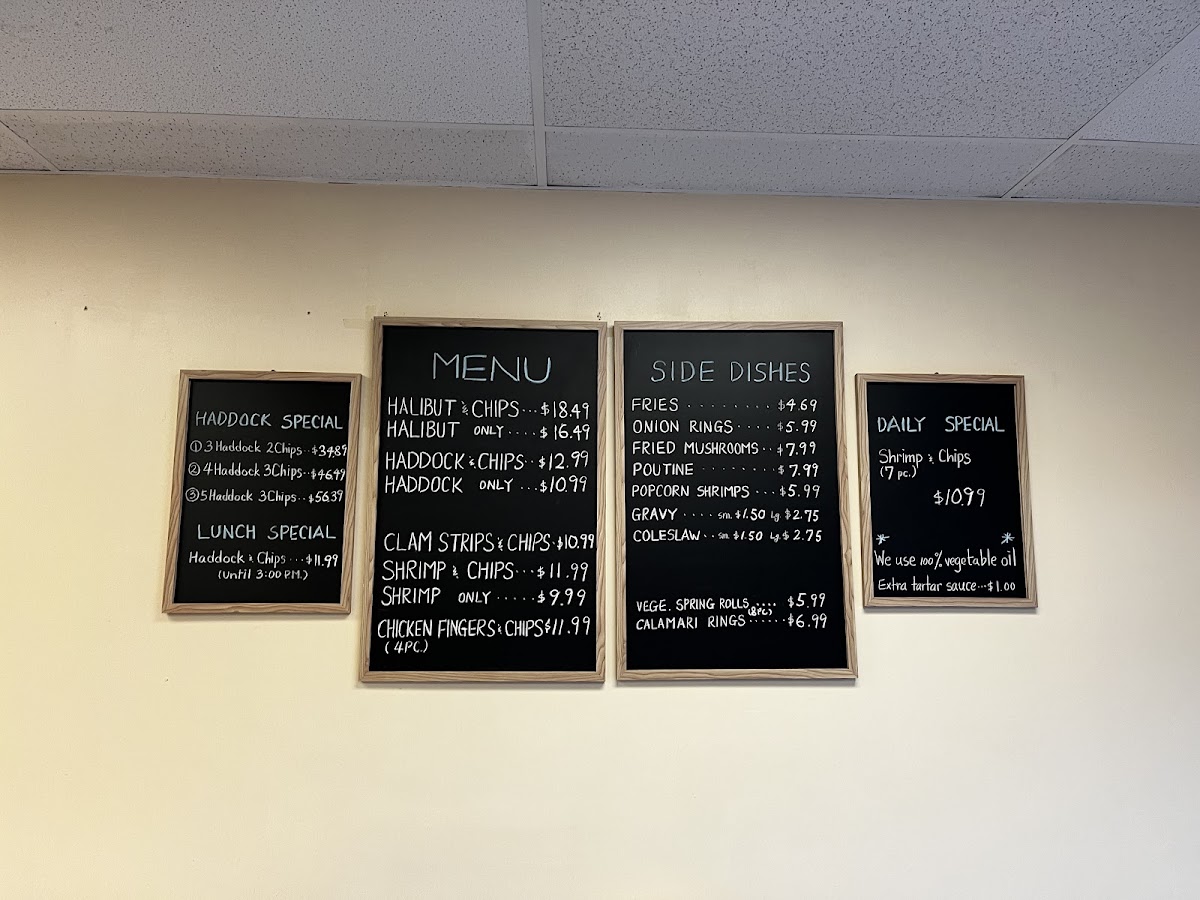 HADDOCK SPECIAL
① 3 Haddock 2 Chips.. $34.89
② 4 Haddock 3 Chips.. $46.49
③ 5 Haddock 3 Chips.. $56.39
LUNCH SPECIAL
Haddock & Chips... $11.99
(until 3:00 P.M.)
MENU
HALIBUT & CHIPS... $18.49
HALIBUT ONLY.... $16.49
HADDOCK & CHIPS.. $12.99
HADDOCK ONLY... $10.99
CLAM STRIPS & CHIPS. $10.99
SHRIMP & CHIPS... $11.99
SHRIMP ONLY..... $9.99
CHICKEN FINGERS & CHIPS $11.99
(4PC.)
SIDE DISHES
FRIES ........ $4.69
ONION RINGS .... $5.99
FRIED MUSHROOMS.. $7.99
POUTINE ....... $7.99
POPCORN SHRIMPS ... $5.99
GRAVY .... sm. $1.50 Lg. $2.75
COLESLAW.. sm. $1.50 Lg. $2.75
VEGE. SPRING ROLLS .... $5.99
(8PC)
CALAMARI RINGS...... $6.99
DAILY SPECIAL
Shrimp & Chips
(7 pc.)
$10.99
* *
We use 100% vegetable oil
Extra tartar sauce...$1.00